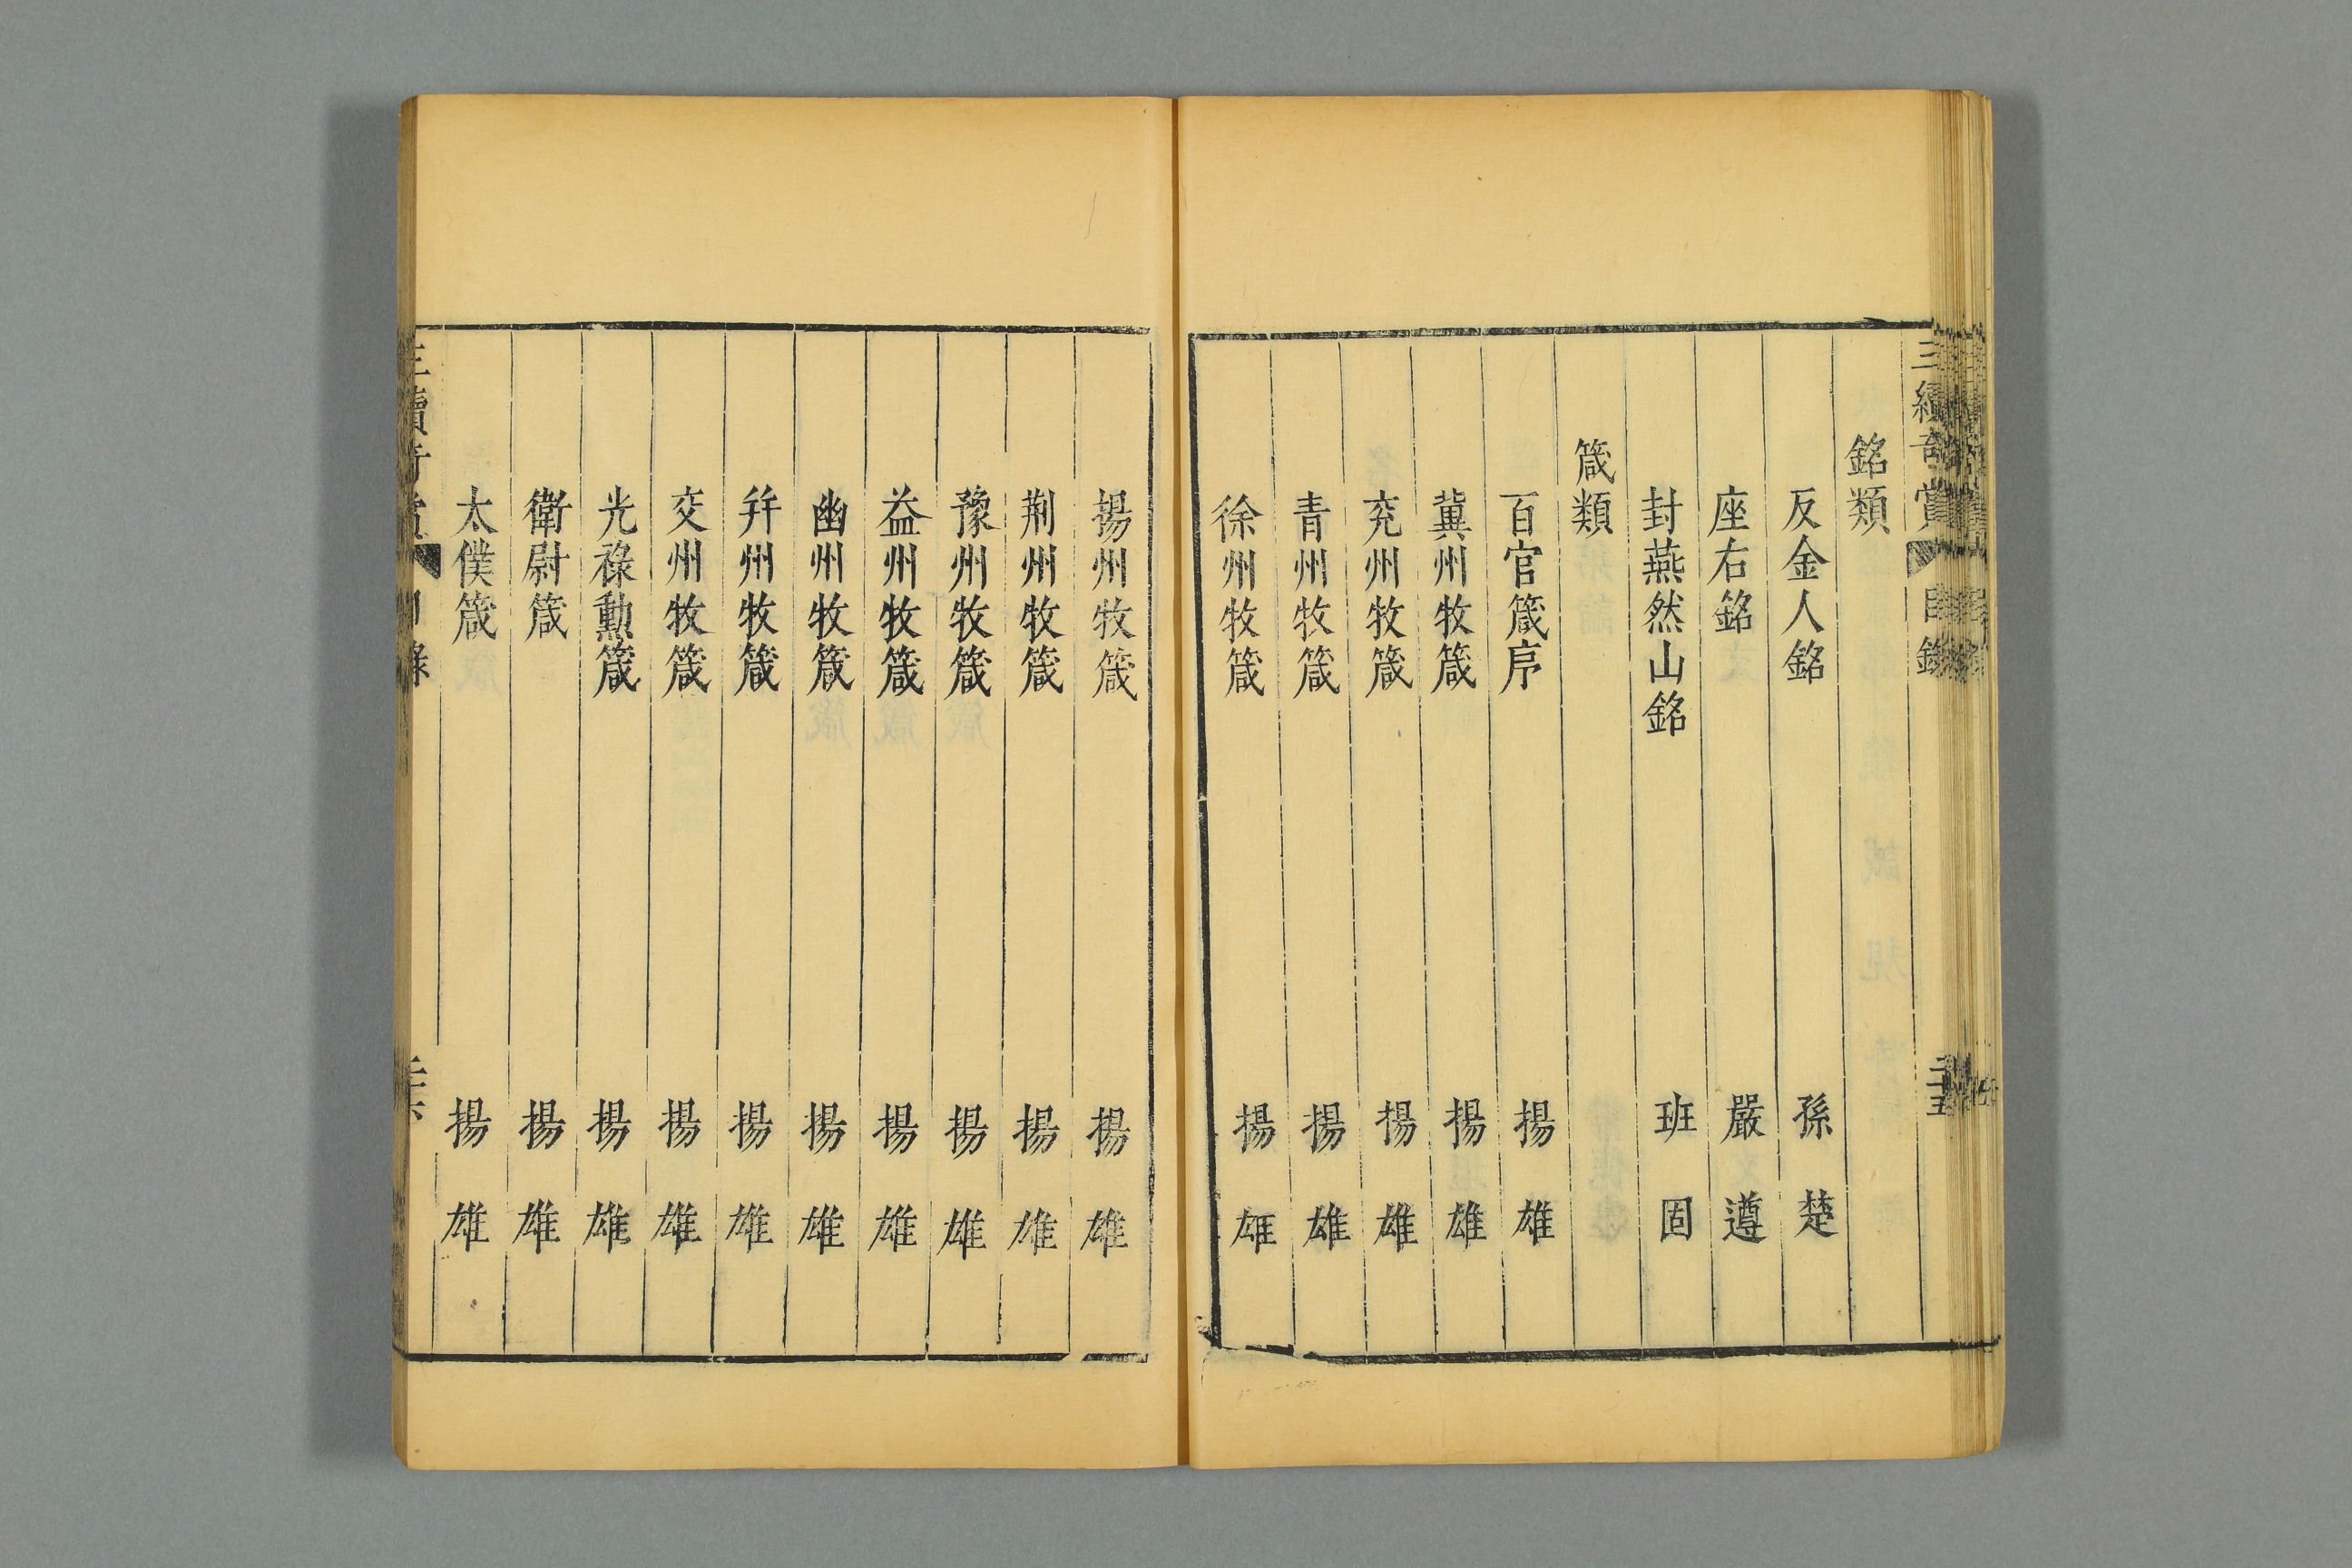 三續奇賞 目錄 二十五
銘類
反金人銘 孫楚
座右銘 嚴遵
封燕然山銘 班固
箴類
百官箴序 揚雄
冀州牧箴 揚雄
兖州牧箴 揚雄
青州牧箴 揚雄
徐州牧箴 揚雄
揚州牧箴 揚雄
荆州牧箴 揚雄
豫州牧箴 揚雄
益州牧箴 揚雄
幽州牧箴 揚雄
幷州牧箴 揚雄
交州牧箴 揚雄
光祿勳箴 揚雄
衛尉箴 揚雄
太僕箴 揚雄
三續奇賞 目錄